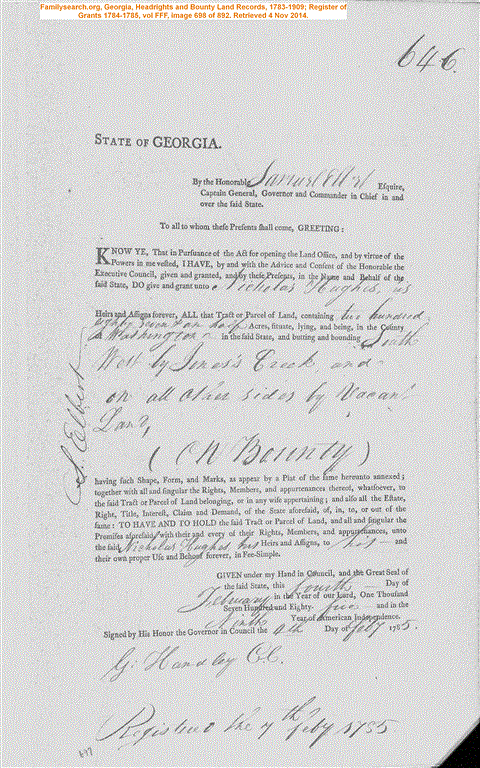 Familysearch.org, Georgia, Headrights and Bounty Land Records, 1783-1909; Register of
Grants 1784-1785, vol FFF, image 698 of 892. Retrieved 4 Nov 2014.
646.
STATE OF GEORGIA.
By the Honorable Samuel Elbert Esquire,
Captain General, Governor and Commander in Chief in and
over the said State.
To all to whom these Presents shall come, GREETING:
KNOW YE, That in Pursuance of the Act for opening the Land Office, and by virtue of the
Powers in me vested, I HAVE, by and with the Advice and Consent of the Honorable the
Executive Council, given and granted, and by these Presents, in the Name and Behalf of the
said State, DO give and grant unto Nicholas Hughes, his
Heirs and Assigns forever, ALL that Tract or Parcel of Land, containing two hundred
eighty seven & an half Acres, situate, lying, and being, in the County
of Washington in the said State, and butting and bounding South
West by Jones's Creek, and
on all other sides by Vacant
Land,
(On Bounty)
S. Elbert
having such Shape, Form, and Marks, as appear by a Plat of the same hereunto annexed;
together with all and singular the Rights, Members, and appurtenances thereof, whatsoever, to
the said Tract or Parcel of Land belonging, or in any wise appertaining; and also all the Estate,
Right, Title, Interest, Claim and Demand, of the State aforesaid, of, in, to, or out of the
same: TO HAVE AND TO HOLD the said Tract or Parcel of Land, and all and singular the
Premises aforesaid, with their and every of their Rights, Members, and appurtenances, unto
the said Nicholas Hughes, his Heirs and Assigns, to his and
their own proper Use and Behoof forever, in Fee-Simple.
GIVEN under my Hand in Council, and the Great Seal of
the said State, this fourth Day of
February in the Year of our Lord, One Thousand
Seven Hundred and Eighty five and in the
Ninth Year of American Independence.
Signed by His Honor the Governor in Council the 4th Day of feby 1785.
G: Handley C.C.
Registered the 7th feby 1785
697